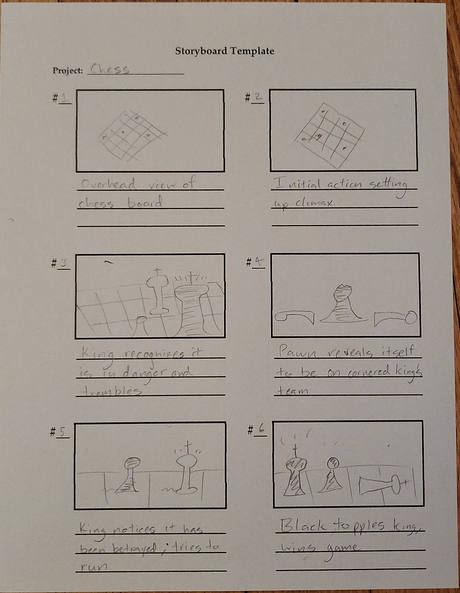 Storyboard Template
Project: Chess
#1
#2
Overhead view of
chess board
Initial action setting
up climax
#3
#4
King recognizes it
is in danger and
trembles
Pawn reveals itself
to be on cornered king's
team
#5
#6
King notices it has
been betrayed; tries to
run
Black topples king,
wins game